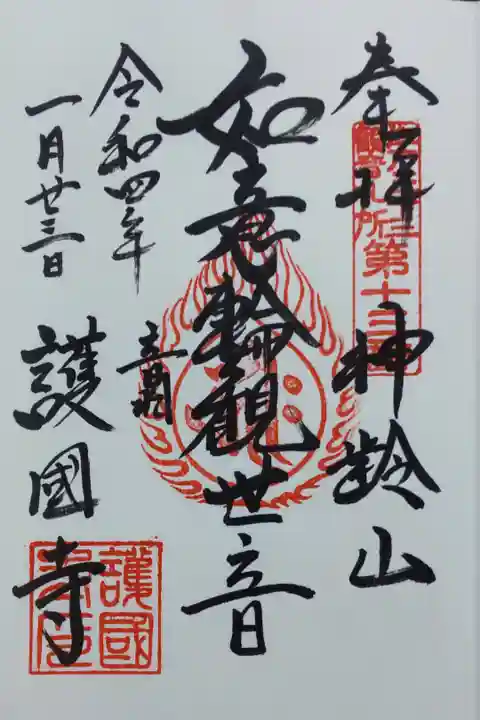 奉拝 神齢山
札所第十三番
如意輪觀世音
令和四年
一月廿三日
音羽
護國寺
護國